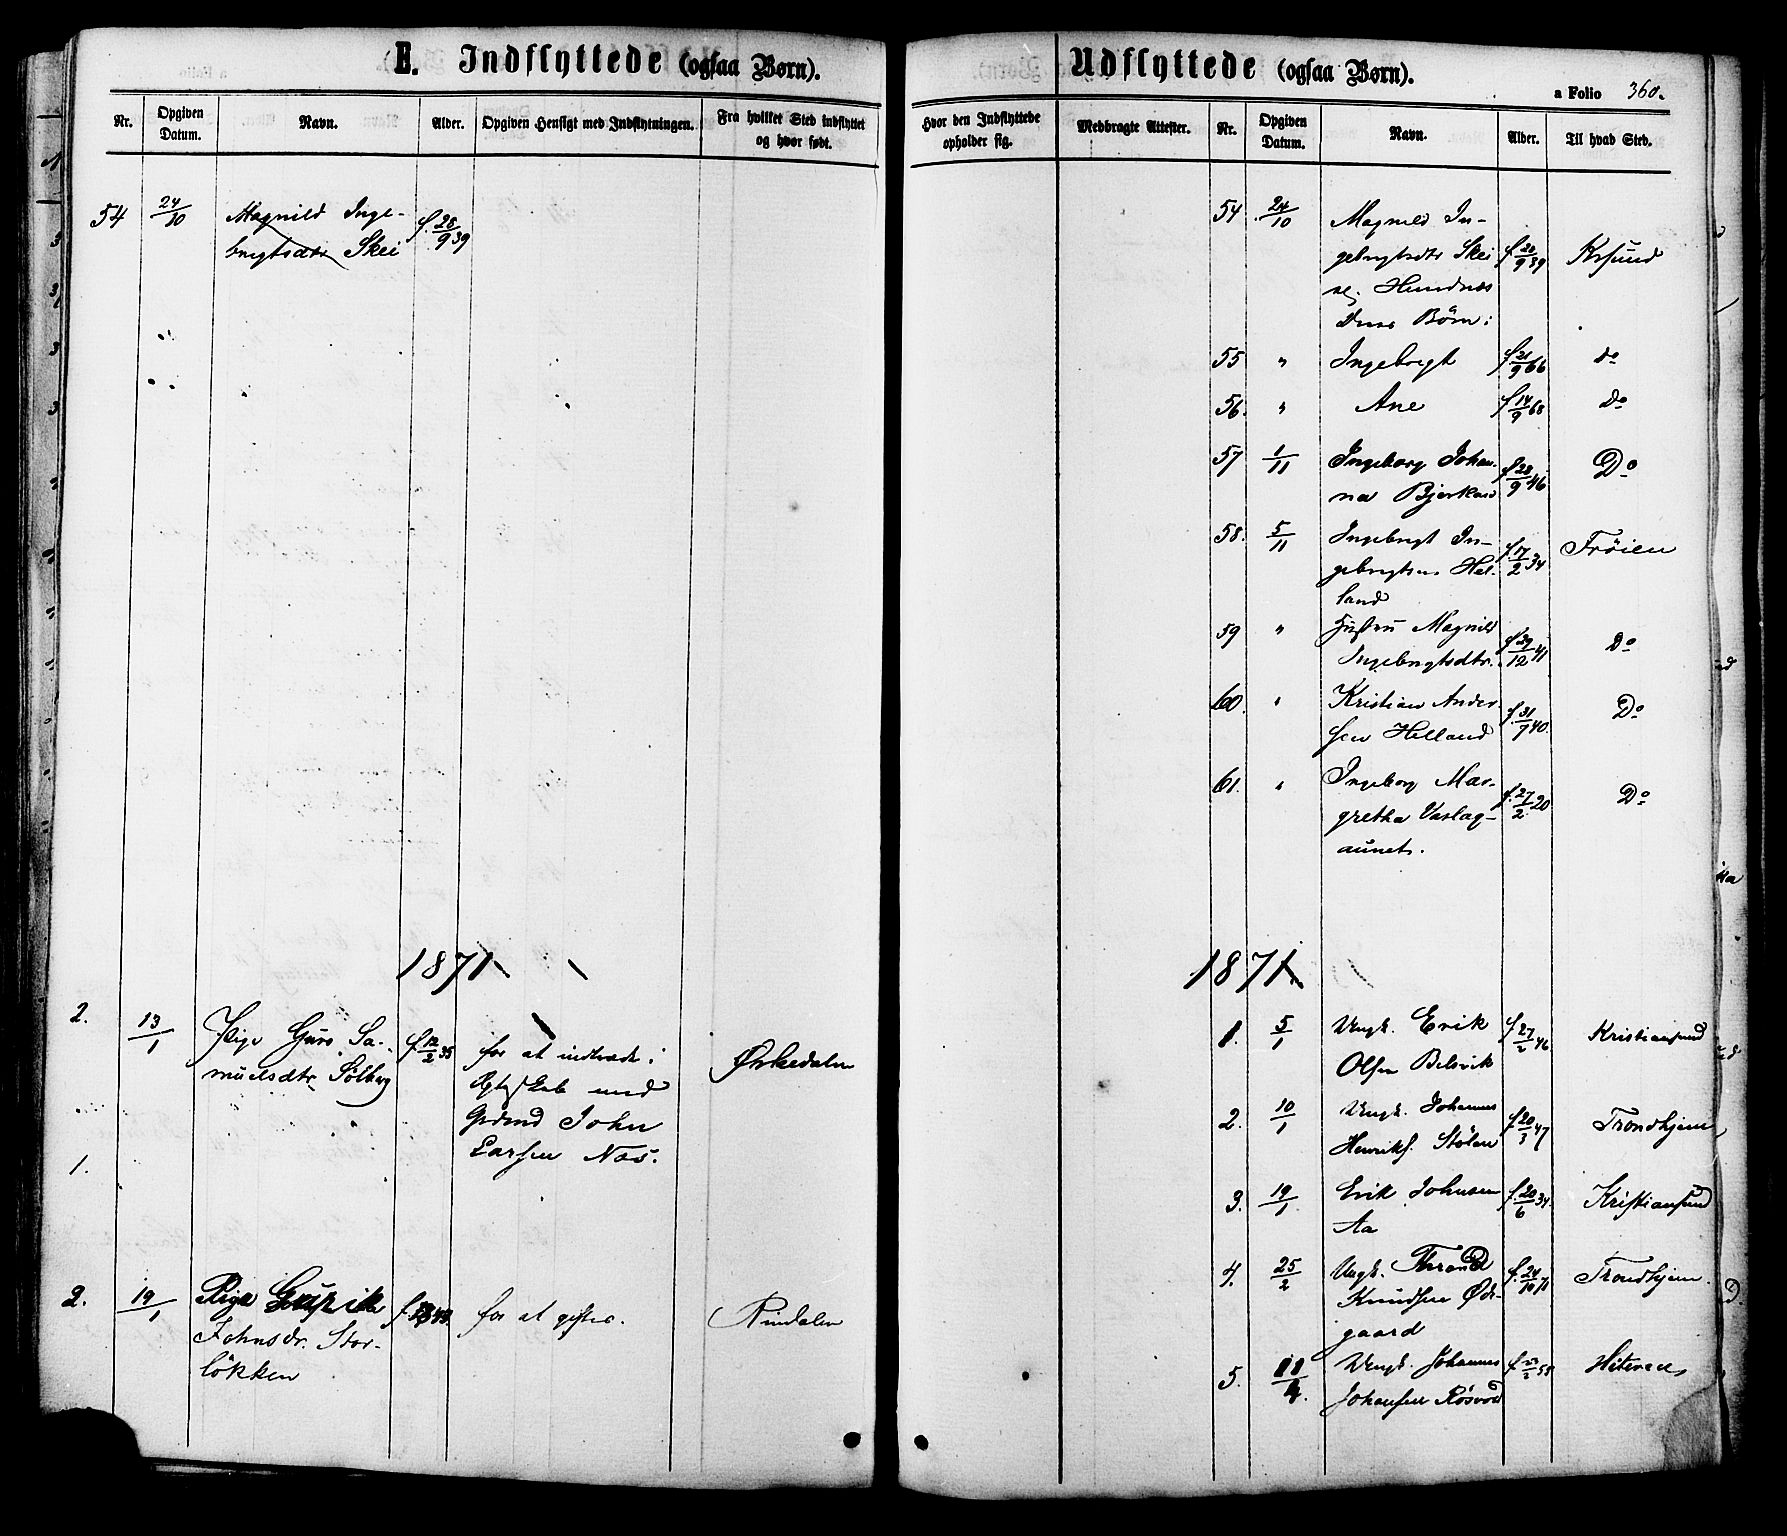 E. Indflyttede (ogsaa Børn).
Nr. Opgiven Datum. Navn. Alder. Opgiven Hensigt med Indflytningen. Fra hvilket Sted indflyttet og hvor født.
54 24/10 Magnild Inge-
brigtsdtr Skei f. 28/9 39
1871
2. 13/1 Pige Guro Sa-
muelsdtr. Solberg f. 12/2 35 for at indtræde i
Ægteskab med
John
Larsen Næs. Ørkedalen
1.
2. 19/1 Pige
Johnsdr. Stor-
løkken for at giftes. Rindalen
Udflyttede (ogsaa Børn).
a Folio 360.
Hvor den Indflyttede opholder sig. Medbragte Attester. Nr. Opgiven Datum. Navn. Alder. Til hvad Sted.
54. 24/10 Magnild In-
gebrigtsdtr Skei f. 28/9 39 Krsund
Hundnes
Børn:
55 " Ingebrigt f. 21/9 66 do
56. " Ane f. 14/9 68 Do
57 1/11 Ingeborg Johan-
na Bjerkaas f. 28/9 46 Do
58. 5/11 Ingebrigt In-
gebrigtsen Hel-
land f. 17/2 34 Frøien
59 " Hustru Magnild
Ingebrigtsdtr. f. 29/12 41 Do
60. " Kristian Ander-
sen Helland f. 31/7 40. Do
61. " Ingeborg Mar-
gretha Vaslag-
aunet. f. 27/2 20 Do
1871
1. 5/1 Ungk. Erik
Olsen Belsvik f. 27/2 46 Kristiansund
2. 10/1 Ungk. Johannes
Henriks. Stølen f. 20/3 47 Trondhjem
3. 19/1 Erik Johnsen
Aa f. 20/6 34. Kristiansund
4. 25/2 Ungk. Thrond
Knudsen Øde-
gaard f. 24/10 Trondhjem.
5. Ungk. Johannes
Johansen Røsvod Hiteren